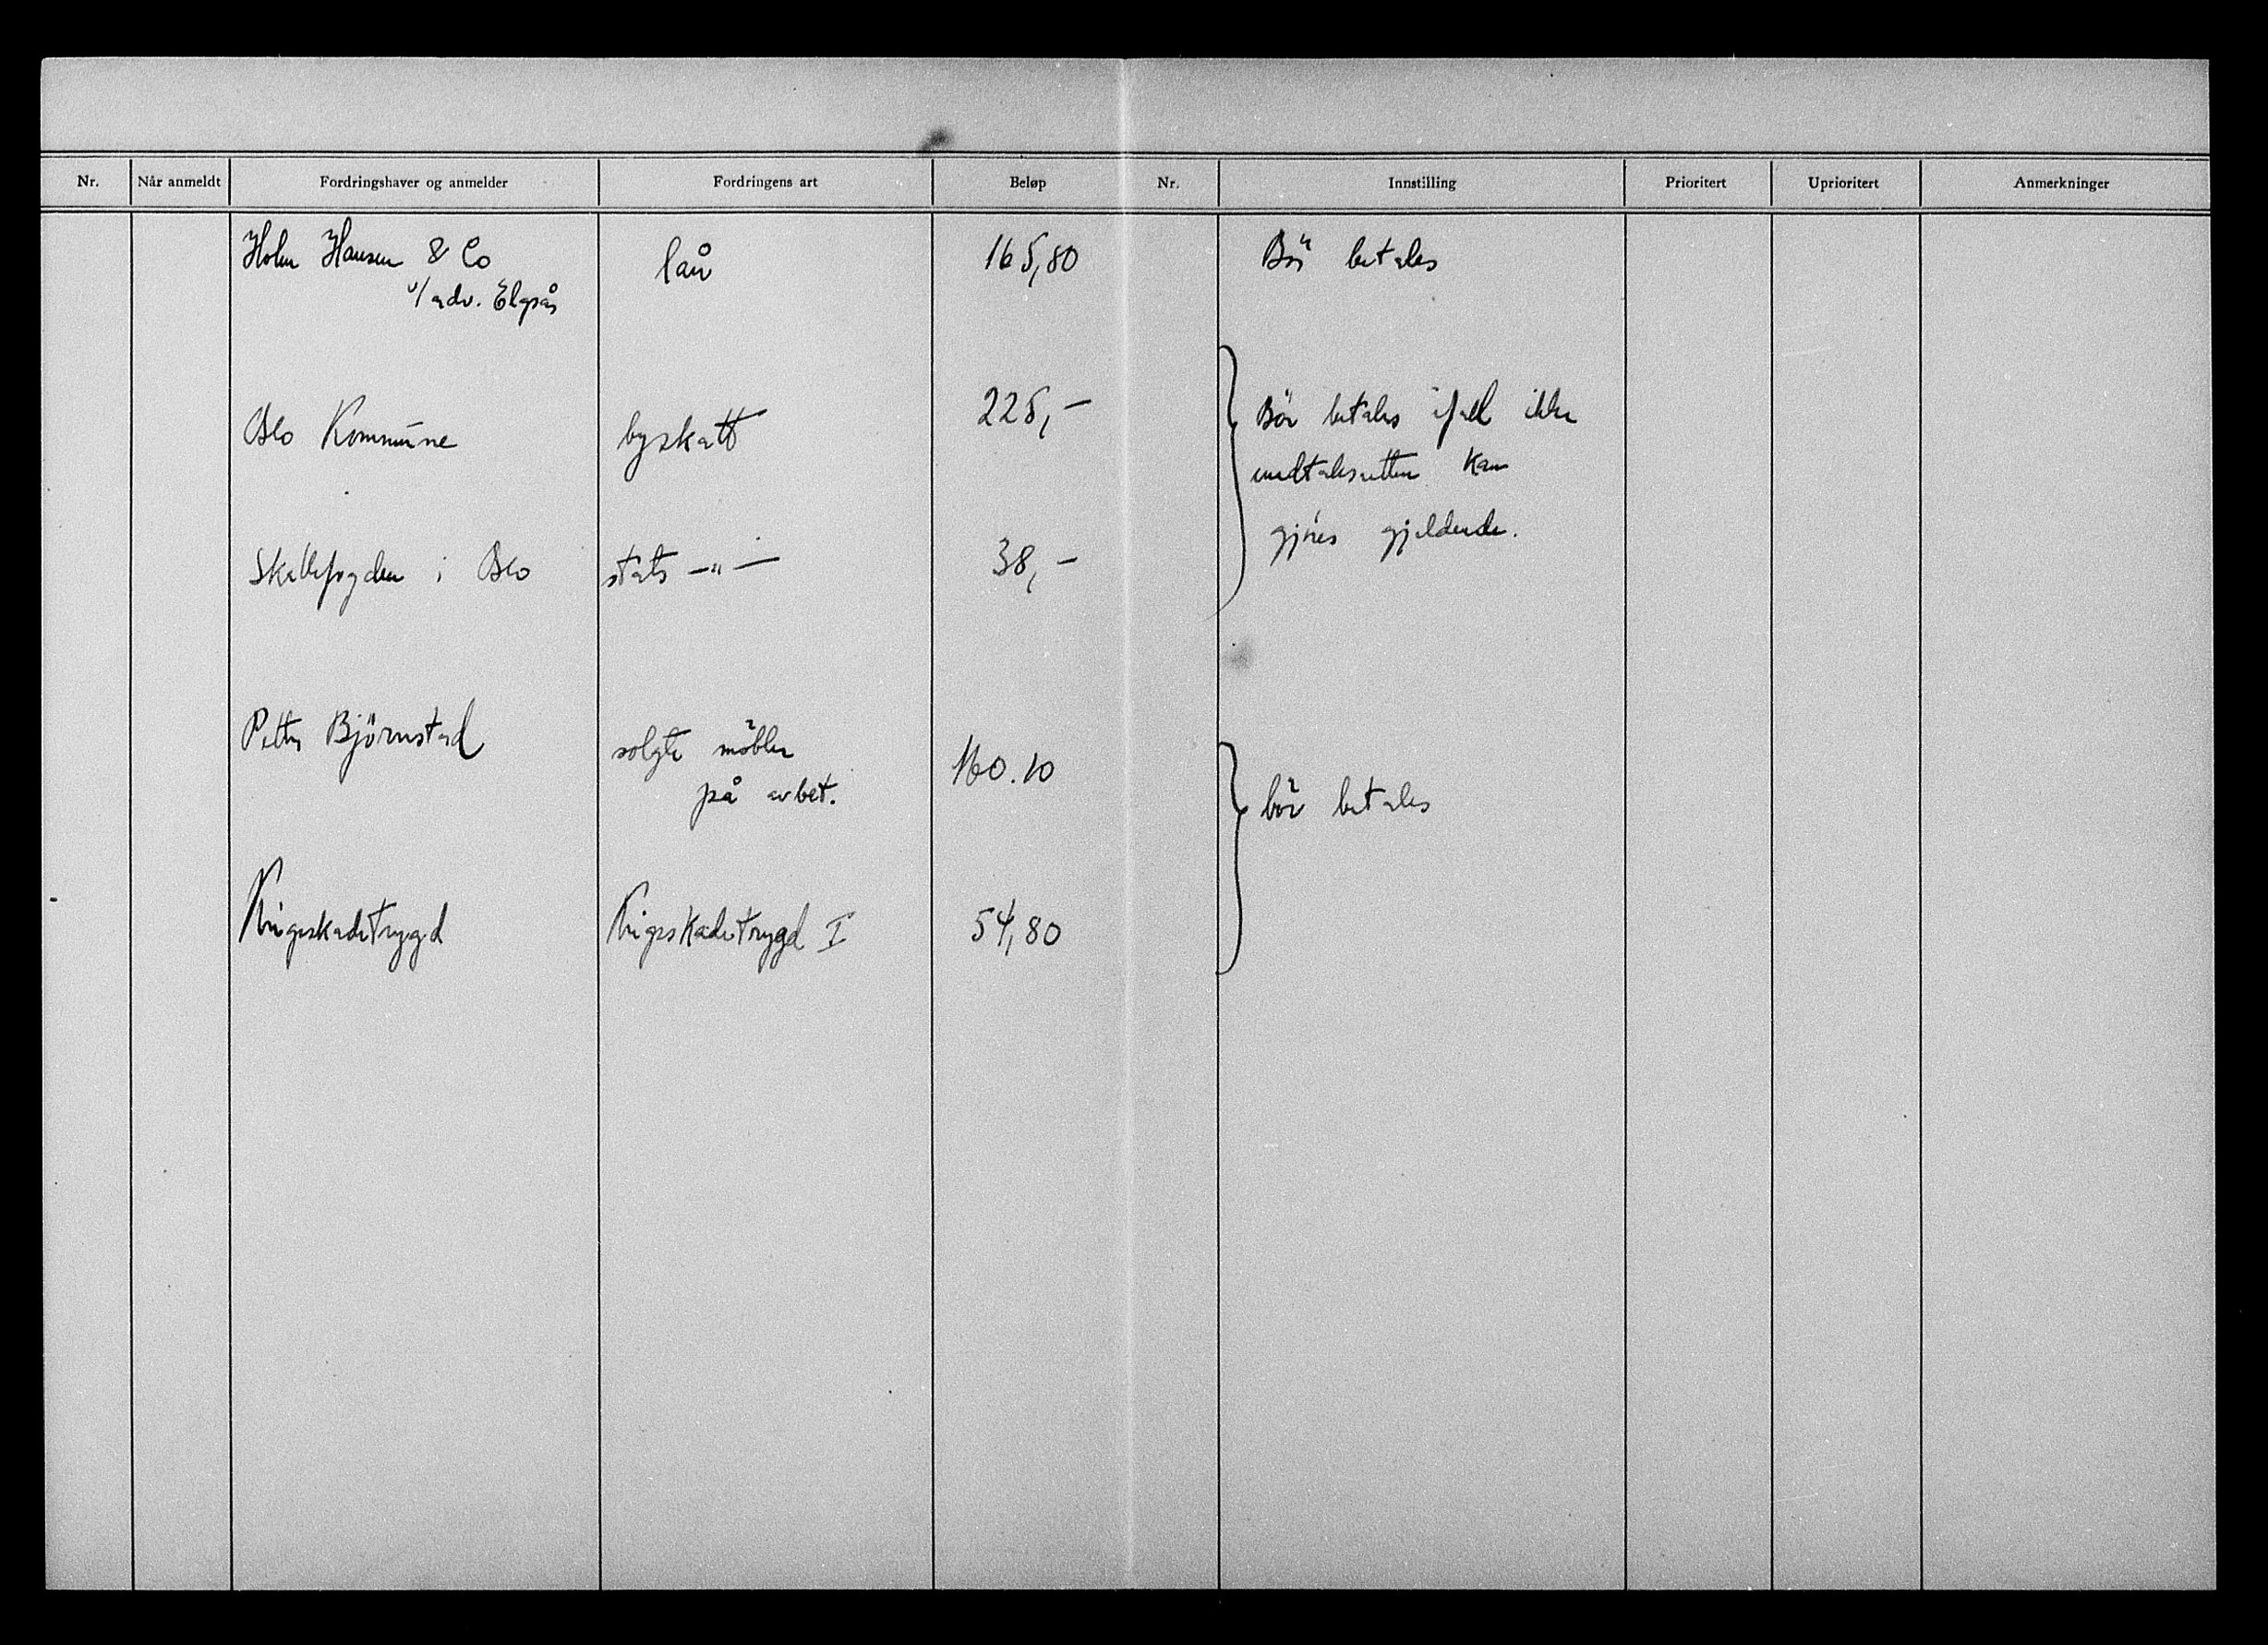 Nr. Når anmeldt Fordringshaver og anmelder Fordringens art Beløp Nr. Innstilling Prioritert Uprioritert Anmerkninger
Holm Hansen & Co lån 165,80 Bör betales
v/ adv. Elgsås
Oslo Kommune byskatt 225,-
Bör betales ifall ikke
inndtalesretten kan
gjöres gjeldende.
Skattefogden i Oslo stats -"- 38,-
Petter Björnstad solgte möbler
på avbet. 160.10
bör betales
Krigsskadetrygd Krigsskadetrygd I 54,80